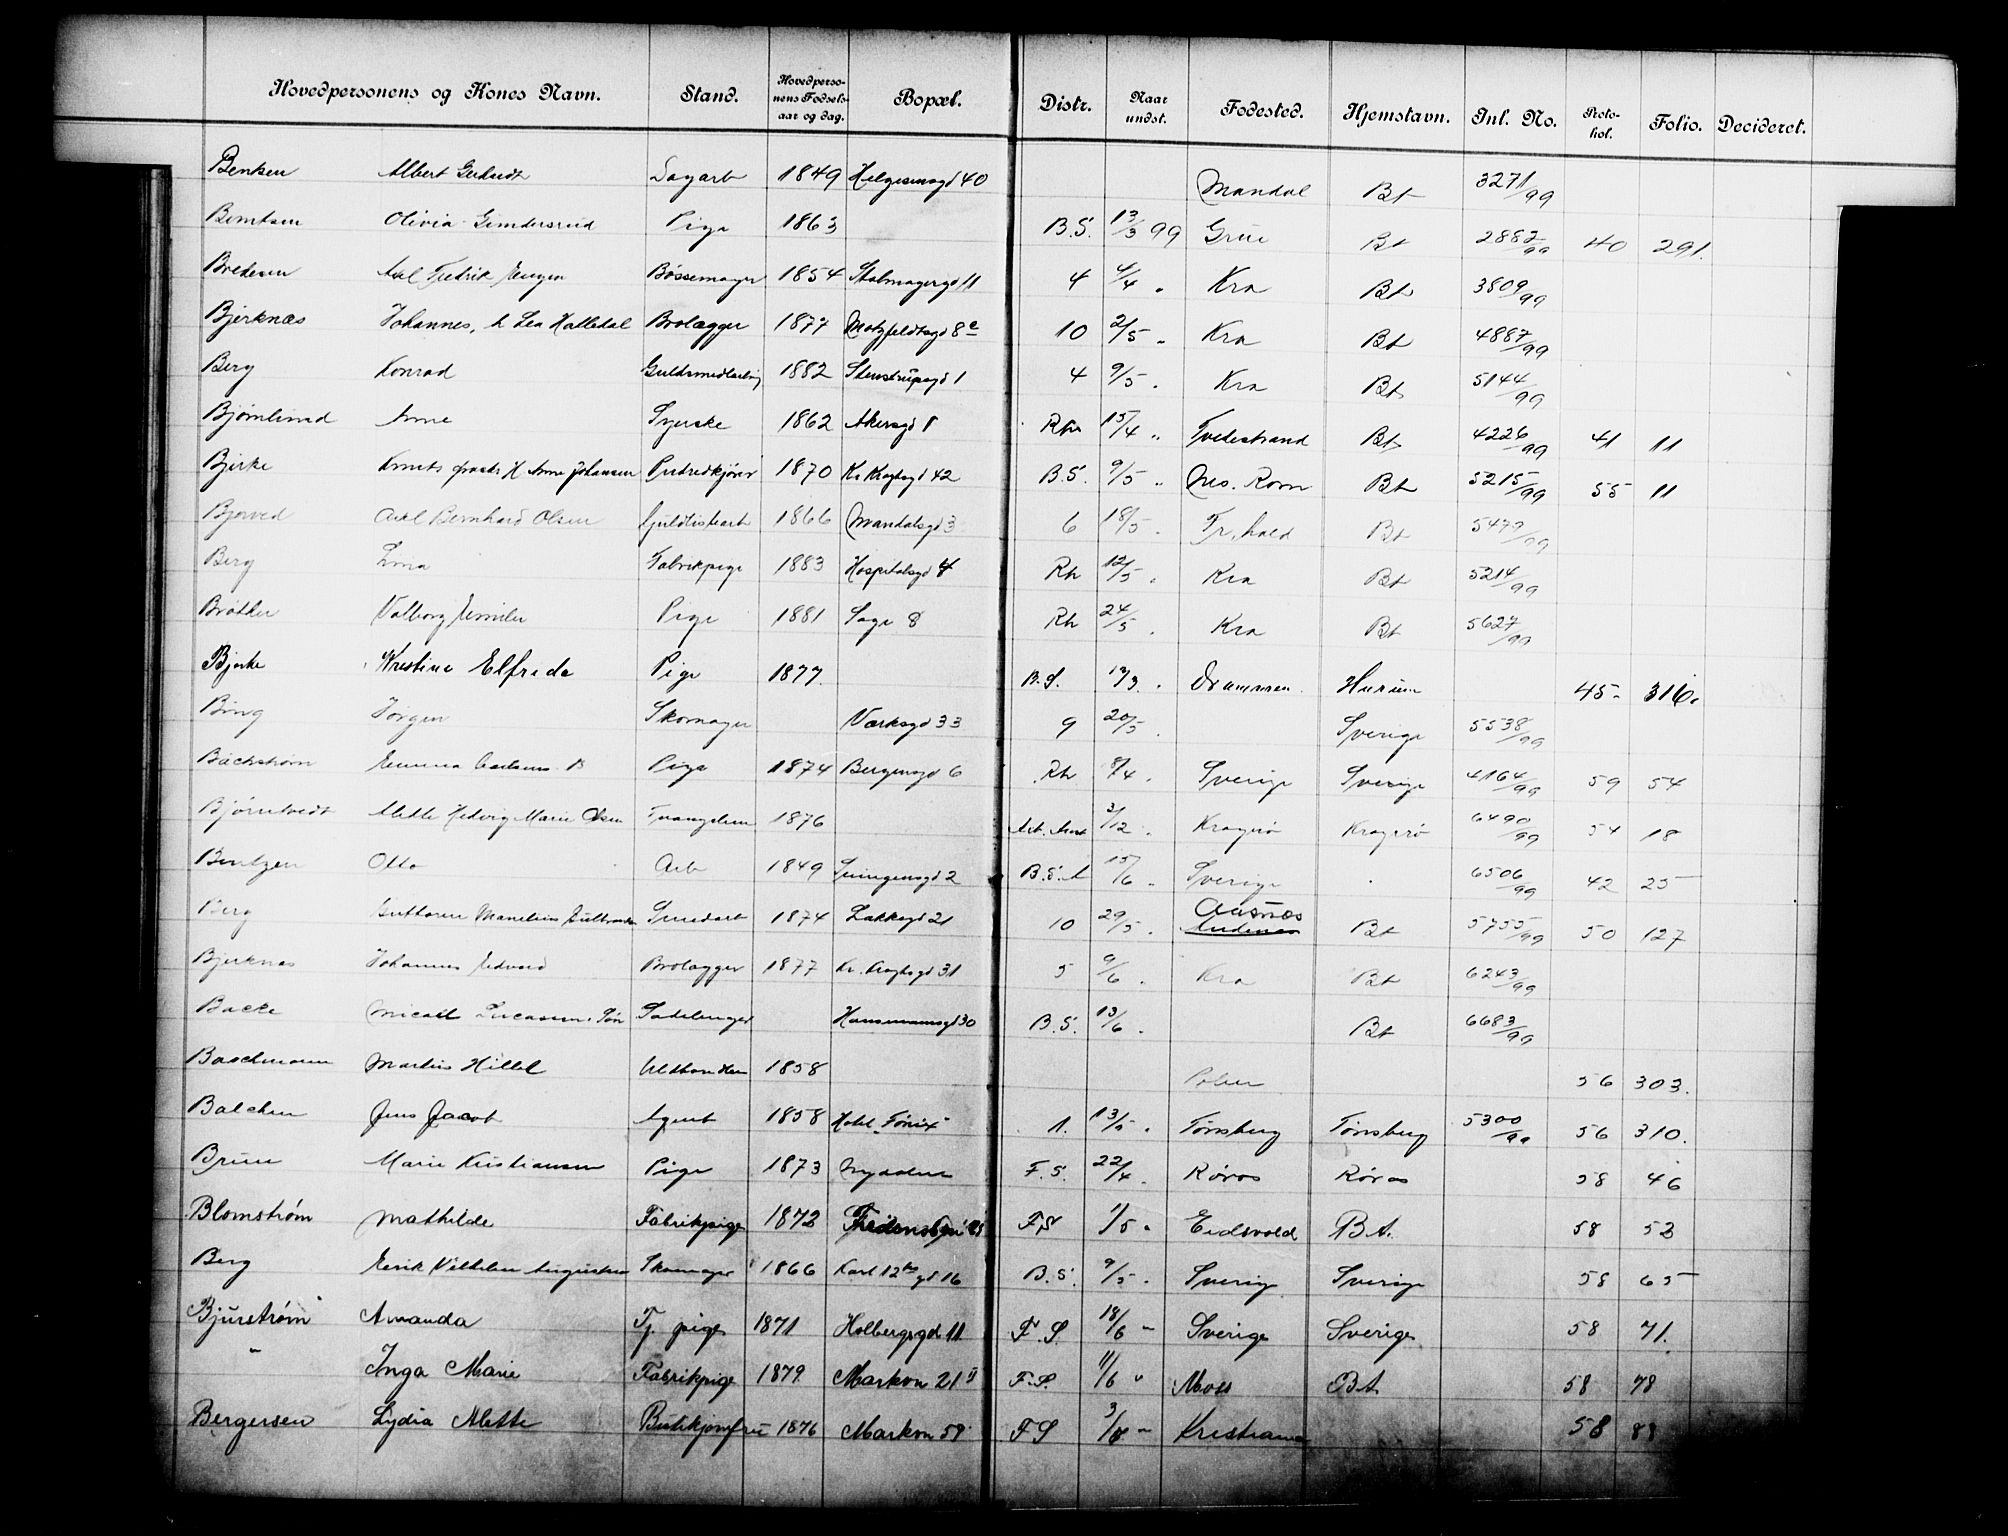 Hovedpersonens og Kones Navn. Stand. Hovedpersonens Fødselsaar og dag. Bopæl. Distr. Naar undst. Fødested. Hjemstavn. Inl. No. Protokol. Folio. Decideret.
Bentsen Albert Dagarb 1849 Helgesensgd 40 Mandal Bt 3271/99
Berntsen Olivia Gundersrud Pige 1863 B.S. 13/3 99 Grue Bt 2882/99 40 291.
Bredesen Axel Fredrik Bøssemager 1854 Stolmagergd 11 4 4/4 " Kra Bt 3809/99
Bjerknæs Johannes, h Lea Brolægger 1877 Motzfeldtsgd 8 10 2/5 " Kra Bt 4887/99
Berg Konrad Guldsmedlærling 1882 Stenstrupsgd 1 4 9/5 " Kra Bt 5144/99
Bjørnlund Anne Syerske 1862 Akersgd Rh 15/4 " Tvedestrand Bt 4226/99 41 11
Bjerke H Anne Johansen 1870 Kr Kroghsgd 42 B.S. 9/5 " Nes. Rom Bt 5215/99 55 11
Axel Bernhard Olsen 1866 Mandalsgd 3 6 18/5 " Fr.hald Bt 5479/99
Berg Lina Fabrikpige 1883 Hospitalsgd 4 Rh 12/5 " Kra Bt 5214/99
Valborg Emilie Pige 1881 Sage 8 Rh 24/5 " Kra Bt 5627/99
Bjerke Kristine Elfrida Pige 1877. B.S. Drammen. Hurum 45 316.
Bing Jørgen Skomager Værksgd 33 9 20/5 " Sverige 5538/99
Bäckstrøm Emma B Pige 1874 Bergensgd 6 Rh 8/4 " Sverige Sverige 4164/99 59 54
Bjørntvedt Mette Hedvig Marie Olsen Tvangslem 1876 Arb. Anst 3/12 " Kragerø Kragerø 6490/99 54 18
Bentzen Otto Arb 1849 2 B.S. 15/6 " Sverige 6506/99 42 25
Berg Guttorm Smedarb 1874 Lakkegd 21 10 29/5 " Aasnæs Bt 5755/99 50 127
Bjerknæs Johannes Edvard Brolægger 1877 Kr. Kroghsgd 31 5 9/6 " Kra Bt 6243/99
Backe Sadelmager Hansmannsgd 30 B.S. 13/6 " Bt 6683/99
Baschmann Martin Hillel 1858 Polen 56 303.
Balchen Jens Jacob Agent 1858 Hotel "Fønix" 1. 13/5 " Tønsberg Tønsberg 5300/99 56 310.
Bruun Marie Kristiansen Pige 1873 Nydalen F.S. 22/4 " Røros Røros 58 46
Blomstrøm Mathilde Fabrikpige 1872 F.S 1/5 " Eidsvold B.t. 58 53
Berg Erik Vilhelm Skomager 1866 Karl 12tes gd 16 B.S. 9/5 " Sverige Sverige 58 65
Bjurstrøm Amanda Tj. pige 1871 Holbergsgd 11 F.S. 18/6 " Sverige Sverige 58 71.
" Inga Marie Fabrikpige 1879. Markvn 21 II F.S. 11/6 " Moss Bt. 58 78
Bergersen Lydia Mette Butikjomfru 1876 Markvn 58 F.S " Kristiania 58 88